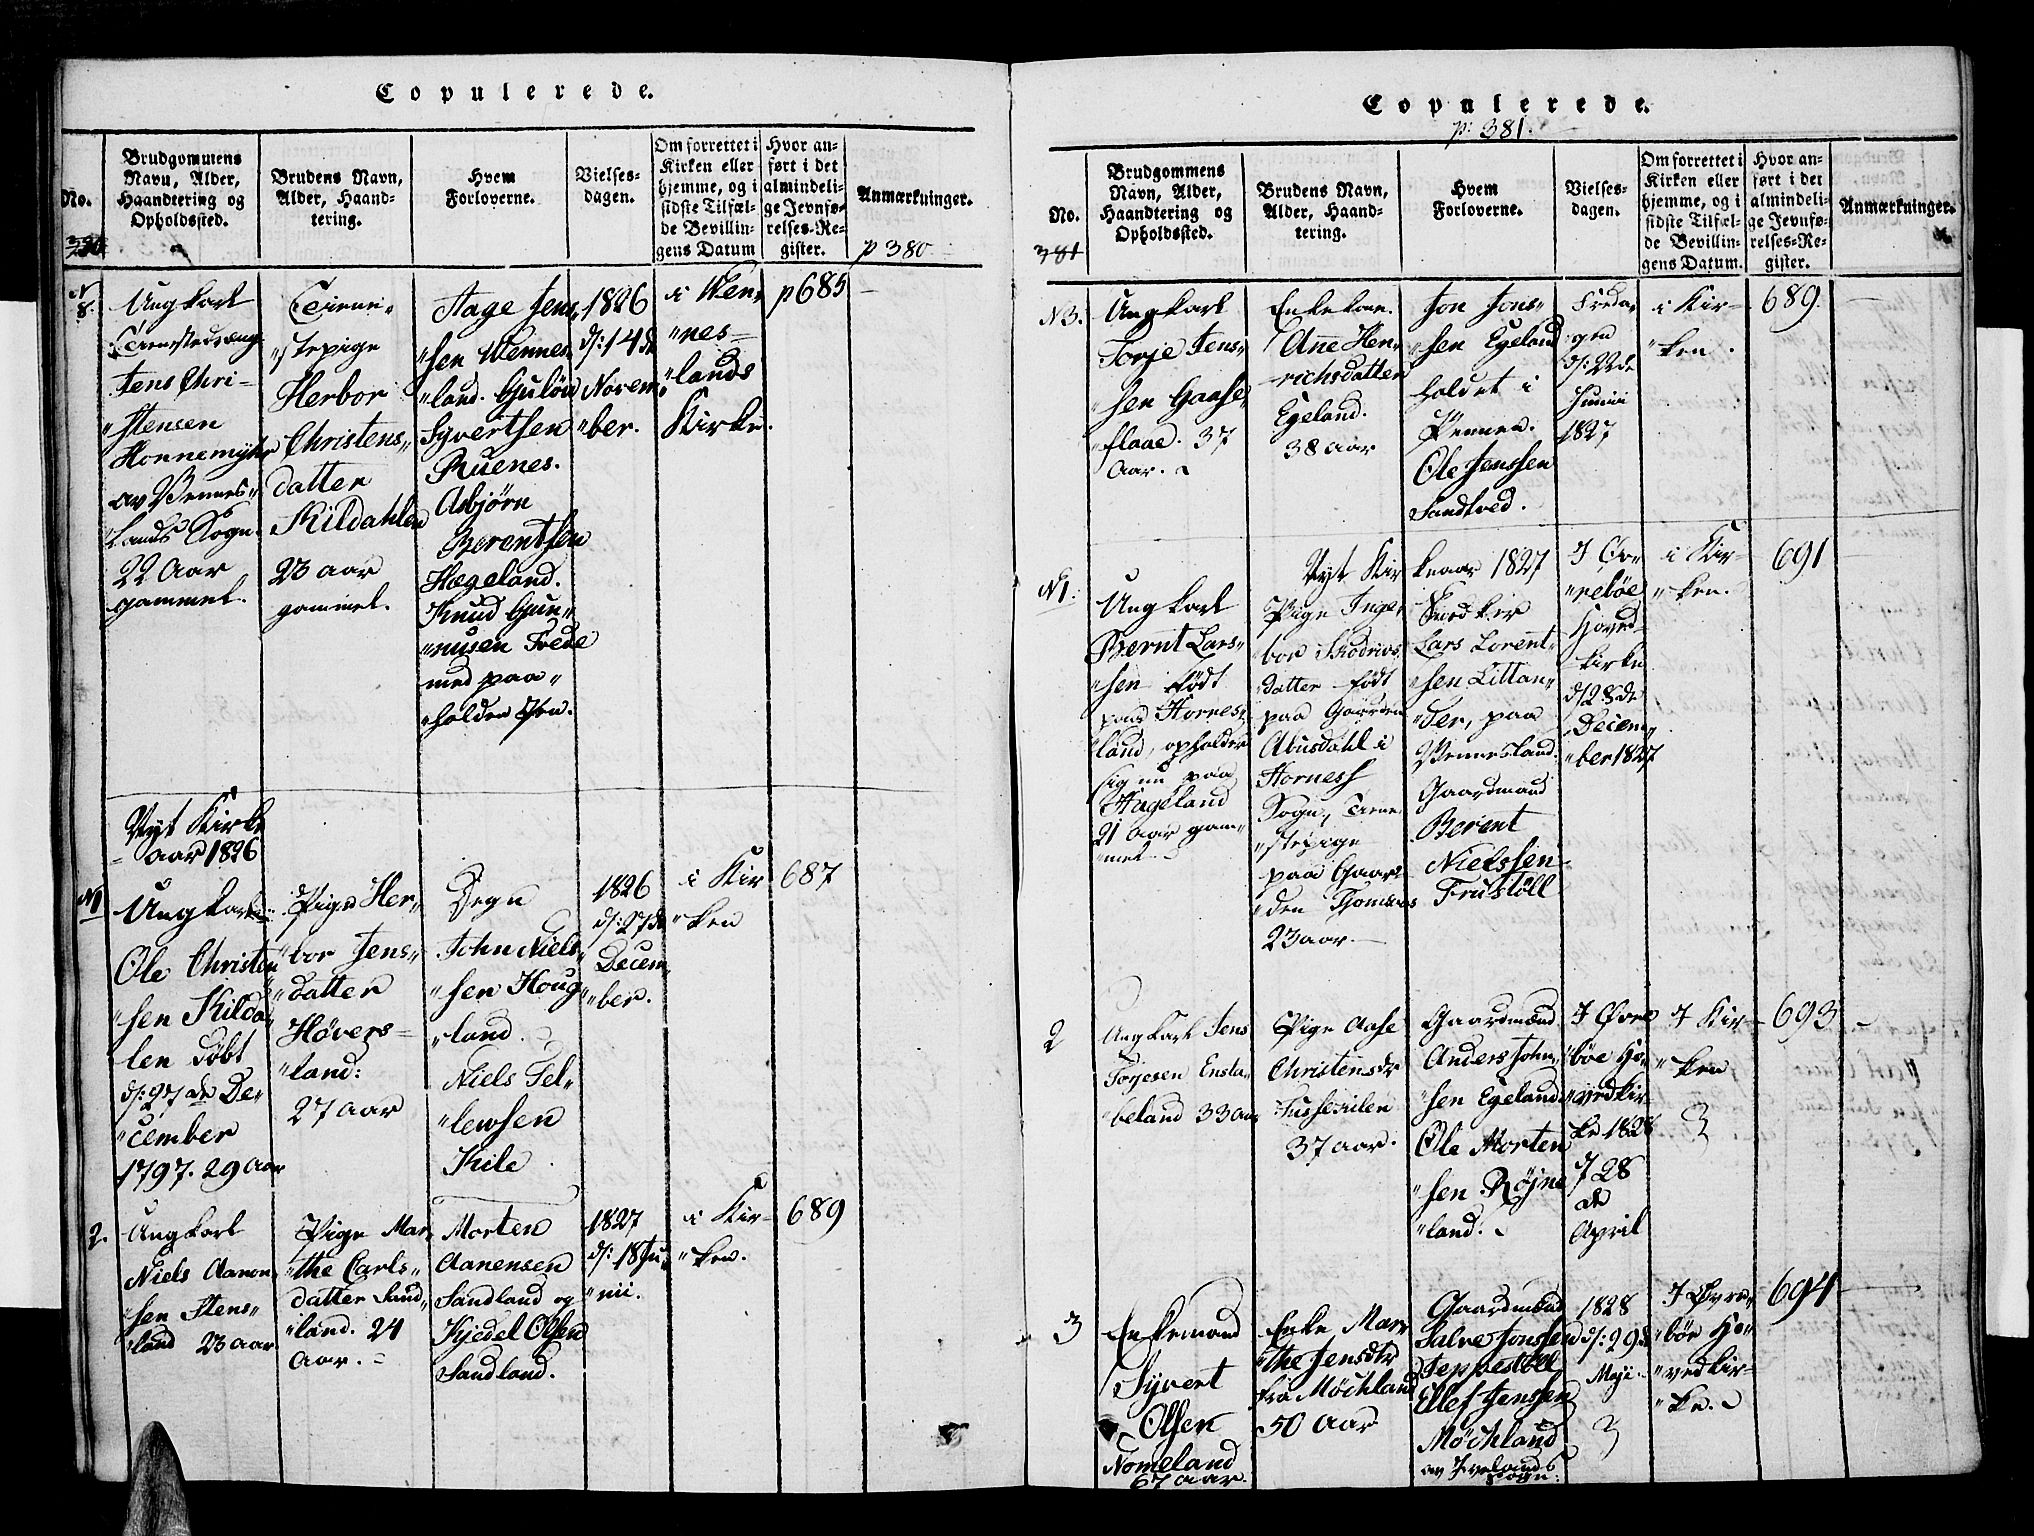 Copulerede.
No.
Brudgommens
Navn, Alder,
Haandtering og
Opholdssted.
Brudens Navn,
Alder, Haand-
tering.
Hvem
Forloverne.
Vielses-
dagen.
Om forrettet i
Kirken eller
hjemme, og i
sidste Tilfæl-
de Bevillin-
gens Datum
Hvor an-
ført i det
almindeli-
ge Jevnfø-
relses-Re-
gister.
Anmærkninger.
p 380
N
8.
Ungkarl
Tienestedræng
Jens Chri-
"stensen
Honnemyhr
av Vennes-
"lands Sogn.
22 Aar
gammel.
Tiene-
"stepige
Herbor
Christens-
datter
Kildahlen
23 aar
gammel.
Aage Jens
"sen Wennes
"land. Guløv
Syvertsen
Ruenes.
Asbjørn
Berentsen
Hægeland.
Knud Gun-
"nusen Frede
med paa-
"holden Pen.
1826
d: 14de
Novem
"ber.
i Wen,
"nes-
"lands
Kirke.
p 685
Nyt Kirke
aar 1826
N1
Ungkarl
Ole Christen
"sen Kilda-
len døbt
d: 27de De-
"cember
1797. 29 Aar
Pige Her-
"bor Jens-
"datter
Høvers-
"land:
27 aar
Degn
John Niels-
"sen Houg
"land.
Niels Tel-
"lewsen
Kile
1826
d: 27de
Decem,
"ber.
i Kir
"ken
687
2.
Ungkarl
Niels Aanon,
"sen Stens-
"land 23 aar
Pige Mar,
"the Carls-
datter Sand,
"land. 24
Aar.
Morten
Aanensen
Sandland og
Kjedel Olsen
Sandland.
1827
d: 18 Ju-
"nii.
i Kir-
"ken.
689
Copulerede.
p: 381.
No.
381
Brudgommens
Navn, Alder,
Haandtering og
Opholdssted.
Brudens Navn,
Alder, Haand-
tering.
Hvem
Forloverne.
Vielses-
dagen.
Om forrettet i
Kirken eller
hjemme, og i
sidste Tilfæl-
de Bevillin-
gens Datum.
Hvor an-
ført i det
almindeli-
ge Jevnfø-
relses-Re-
gister.
Anmærkninger.
N3.
Ungkarl
Torje Jens-
"sen Gaase,
"flaae. 37
Aar.
Enkekone.
Anne Hen-
richsdatter
Egeland.
38 aar
Jon Jons-
"sen Egeland
holdet i
Pennen.
Ole Jenssen
Sandked.
Freda-
gen
d: 22de
Junii
1827
i Kir-
"ken.
689.
Nyt Kir keaar 1827
N1.
Ungkarl
Bernt Lars-
"sen født
paa Hornes,
"land, opholder
sig nu paa
Hageland
21 Aar gam-
"mel
Pige Inge,
bor Skodrivs
datter født
paa Gaarden
Abusdahl i
Horness
Sogn, Tiene
"stepige
paa Gaar-
"den Tjomsaas
23 aar.
Lars Lorent-
"sen Littan-
"der, paa
Vennesland.
Gaardmand
Berent
Nielssen
Frustøll
I Øv-
"rebøe
Hoved-
kirke
d: 28de
Decem,
"ber 1827
i Kir-
"ken.
691
2
Ungkarl Jens
Torjesen Ensta-
"beland 33 aar
Pige Aase
Christensdr
37 aar.
Gaardmænd
Anders John,
"sen Egeland
Ole Morten
"sen Røjne
"land.
I Øvre
"bøe Ho-
"vedkir-
ke 1828
d 28
de
April
I Kir-
"ken
693
3
Enkemand
Syvert
Olsen
Nomeland
67 aar.
Enke Mar,
"the Jensdtr
fra Möchland
50 Aar
Gaardmænd
Salve Jonssen
Jeppestøl
Ellef Jenssen
Möchland
av Ivelands
Sogn.
1828
d: 29de
Maji.
I Øvre-
"bøe Ho-
"vedkir-
"ke.
694